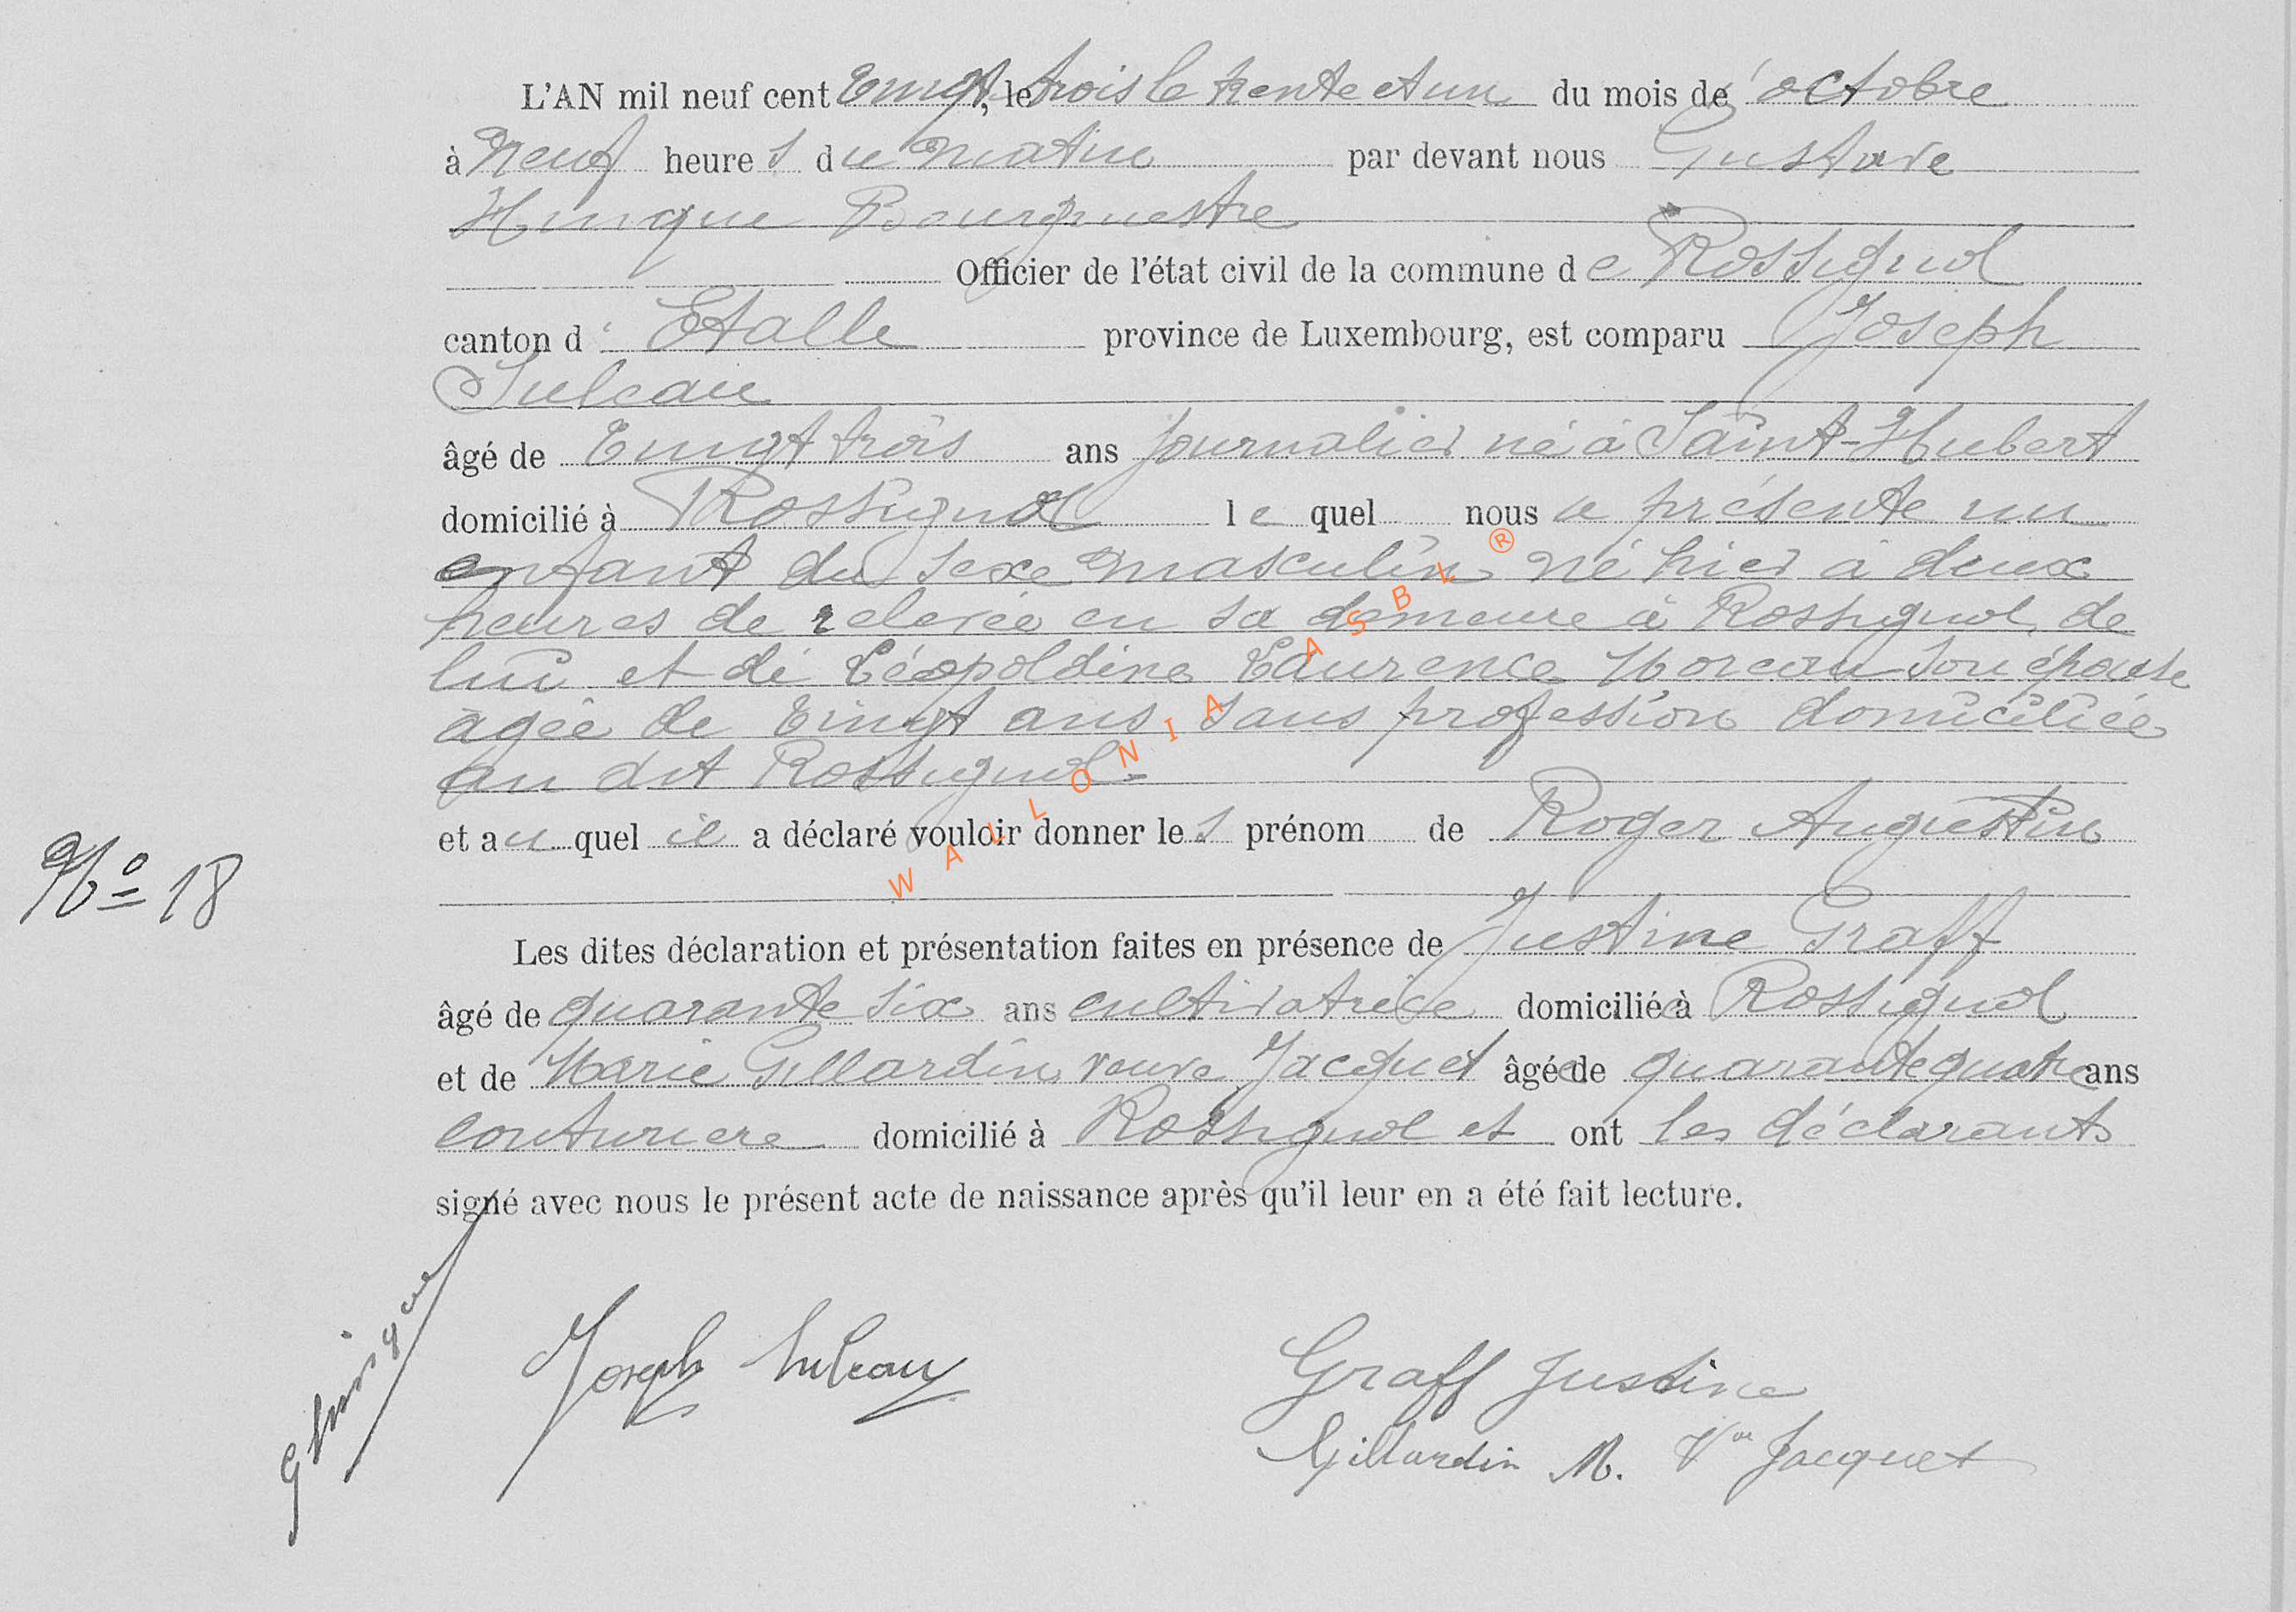 L'AN mil neuf cent vingt, le trois le trente et un du mois de octobre
à Neuf heures du matin par devant nous Gustave
Hinque Bourgmestre
Officier de l'état civil de la commune de Rossignol
canton d' Etalle province de Luxembourg, est comparu Joseph
Suleau
âgé de vingt trois ans journalier né à Saint-Hubert
domicilié à Rossignol lequel nous a présenté un
enfant du sexe masculin né hier à deux
heures de relevée en sa demeure à Rossignol de
lui et de Léopoldine Laurence Moreau son épouse
agée de vingt ans, sans profession domiciliée
au dit Rossignol -
et auquel il a déclaré vouloir donner les prénom de Roger Augustin
No 18
Les dites déclaration et présentation faites en présence de Justine Graff
âgé de quarante six ans cultivatrice domiciliée à Rossignol
et de Marie Gillardin veuve Jacquet âgée de quarante quatre ans
couturiere domicilié à Rossignol et ont les déclarants
signé avec nous le présent acte de naissance après qu'il leur en a été fait lecture.
G Hinque Joseph Suleau Graff Justine
Gillardin M. Ve Jacquet
WALLONIA ASBL ®